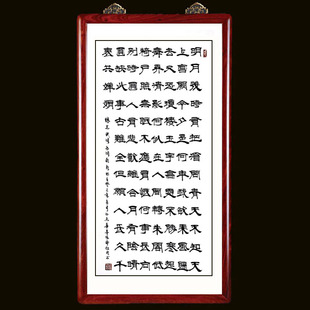 明月幾時有把酒問青天不知天
上宮闕今夕是何年我欲乘風歸
去又恐瓊樓玉宇高處不勝寒起
舞弄清影何似在人間轉朱閣低
綺戶照無眠不應有恨何事長向
別時圓人有悲歡離合月有陰晴
圓缺此事古難全但願人長久千
里共嬋娟